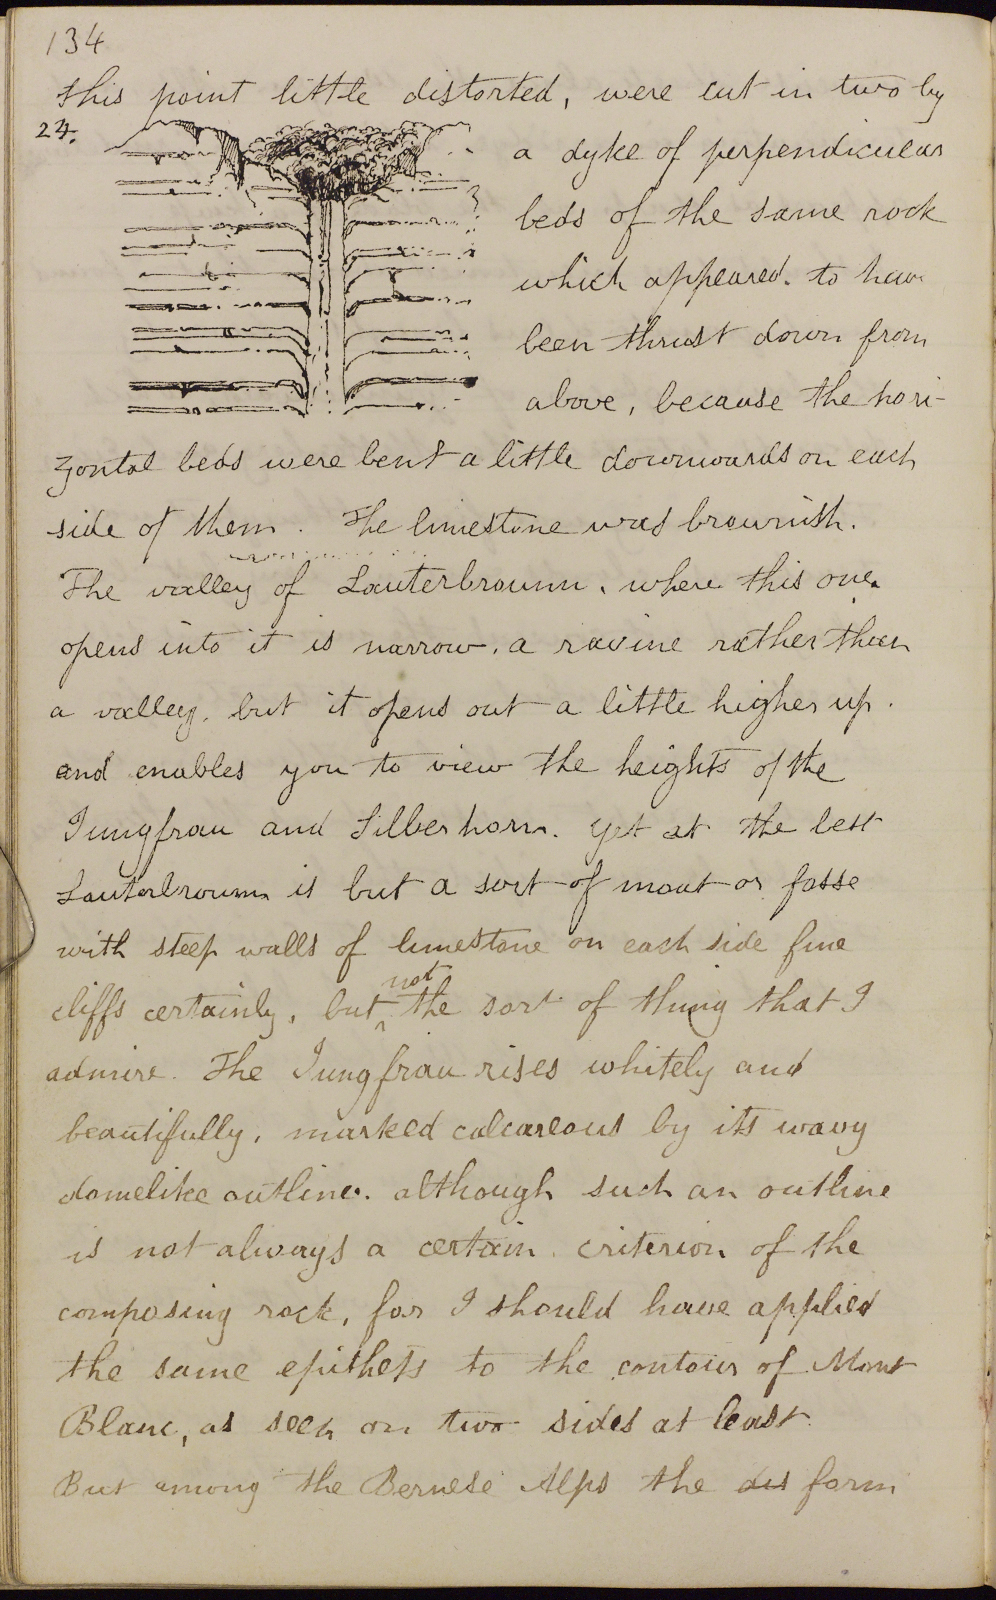 134
this point little distorted, were cut in two by
24.
a dyke of perpendicular
beds of the same rock
which appeared. to have
been thrust down from
above, because the hori-
zontal beds were bent a little downwards on each
side of them. The limestone was brownish.
The valley of Lauterbrounn, where this one
opens into it is narrow, a ravine rather than
a valley, but it opens out a little higher up.
and enables you to view the heights of the
Jungfrau and Silberhorn. Yet at the best
Lauterbrounn is but a sort of moat or fosse
with steep walls of limestone on each side fine
cliffs certainly, but not the sort of thing that I
admire. The Jungfrau rises whitely and
beautifully, marked calcareous by its wavy
domelike outline. although such an outline
is not always a certain criterion of the
composing rock, for I should have applied
the same epithets to the contour of Mont
Blanc, as seen on two sides at least.
But among the Bernese Alps the dis form